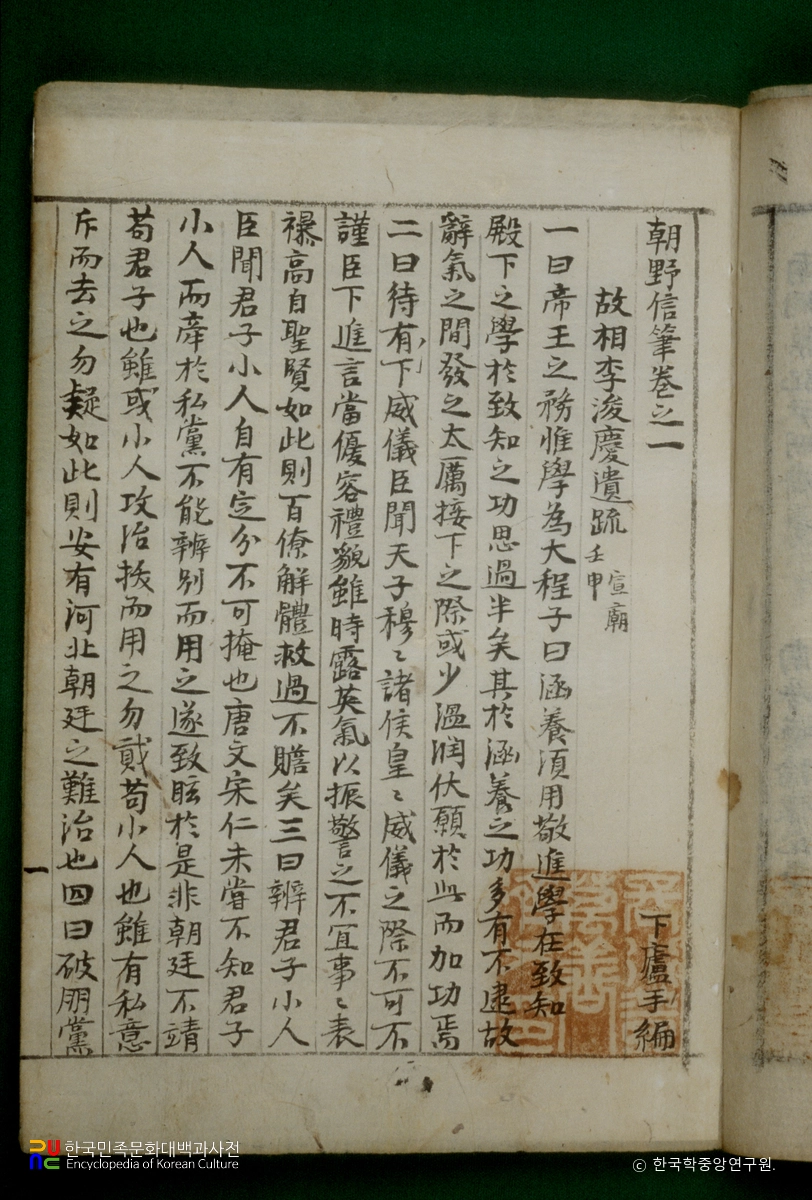 朝野信筆卷之一
下廬手編
故相李浚慶遺疏 宣廟壬申
一曰帝王之務惟學為大程子曰涵養須用敬進學在致知
殿下之學於致知之功思過半矣其於涵養之功多有不逮故
辭氣之間發之太厲接下之際或少溫潤伏願於此而加功焉
二曰待有下威儀臣聞天子穆〻諸侯皇〻威儀之際不可不
謹臣下進言當優容禮貌雖時露英氣以振警之不宜事〻表
襮高自聖賢如此則百僚解體救過不贍矣三曰辨君子小人
臣聞君子小人自有定分不可掩也唐文宋仁未嘗不知君子
小人而牽於私黨不能辨别而用之遂致眩於是非朝廷不靖
苟君子也雖或小人攻治拔而用之勿貳苟小人也雖有私意
斥而去之勿疑如此則安有河北朝廷之難治也四曰破朋黨
一
한국민족문화대백과사전
Encyclopedia of Korean Culture
© 한국학중앙연구원.